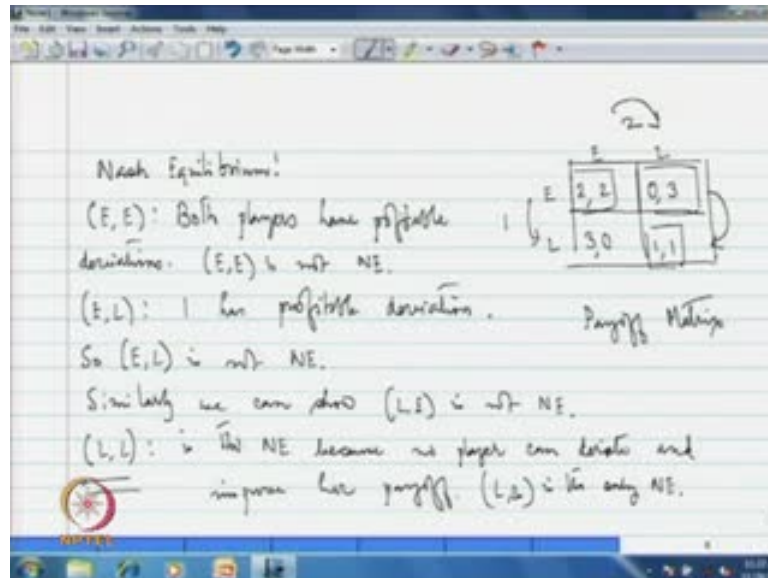 Nash Equilibrium!
(E, E): Both players have profitable
deviations. (E, E) is not NE.
(E, L): 1 has profitable deviation.
So (E, L) is not NE.
Similarly we can show (L, E) is not NE.
(L, L): is the NE because no player can deviate and
improve her payoff. (L, L) is the only NE.
2
E L
1 E 2, 2 0, 3
L 3, 0 1, 1
Payoff Matrix
NPTEL
Page Width